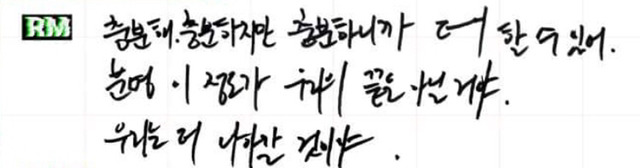 RM 충분해. 충분하지만 충분하니까 더 할 수 있어.
분명 이 정도가 우리의 끝은 아닐 거야.
우리는 더 나아갈 것이야.